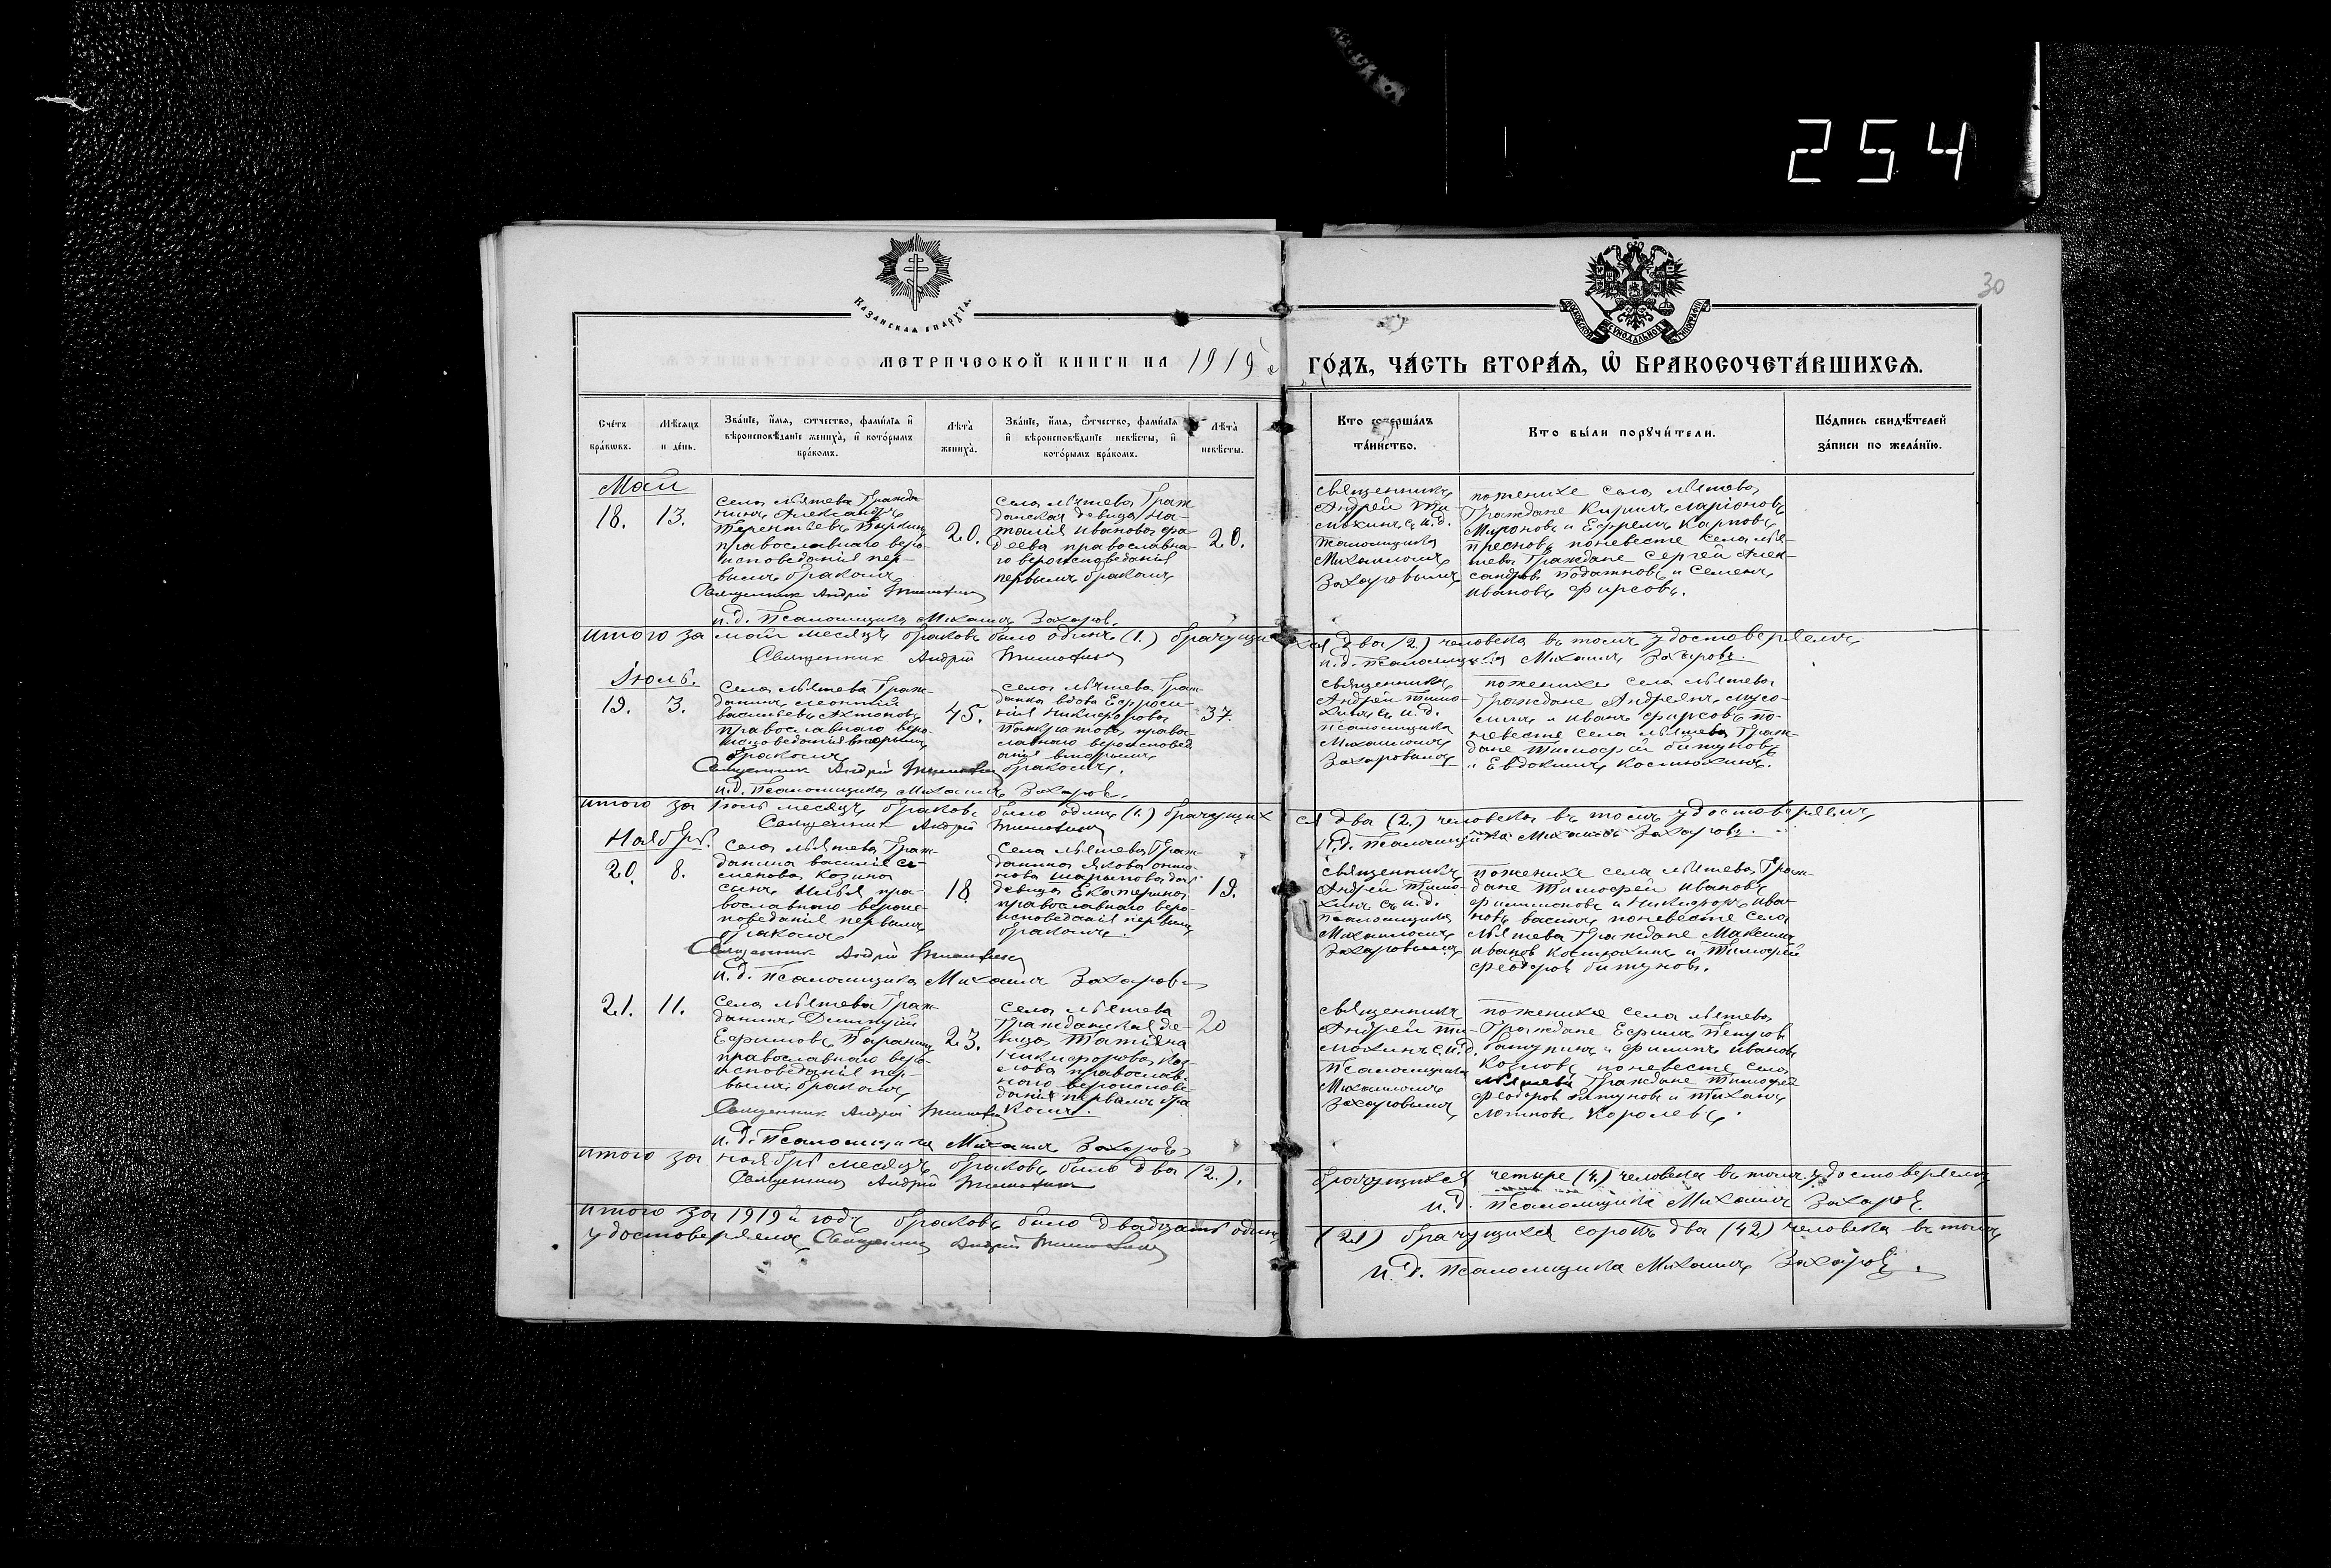 254
30
КАЗАНСКАЯ ЕПАРХІЯ
МОСКОВСКОЙ СѴНОДАЛЬНОЙ ТИПОГРАФІИ
МЕТРИЧЕСКОЙ КНИГИ НА 1919 ГО́ДЪ, ЧА́СТЬ ВТОРА́Я, Ѡ҆ БРАКОСОЧЕТА́ВШИХСЯ.
Сче́тъ бра́кѡвъ.
Мѣ́сяцъ и де́нь.
Зва́нїе, и҆́мя, ѻ҆́тчество, фами́лїя и҆
вѣроисповѣ́данїе жениха̀, и҆ кото́рымъ
бра́комъ.
Лѣта̀
жениха̀.
Зва́нїе, и҆́мя, ѻ҆́тчество, фами́лїя
и҆ вѣроисповѣ́данїе невѣ́сты, и҆
кото́рымъ бра́комъ.
Лѣта̀
невѣ́сты.
Кто̀ соверша́лъ
та́инство.
Кто̀ бы́ли порꙋчи́тели.
По́дпись свидѣ́телей
за́писи по жела́нїю.
Май
18. 13.
Села Мѣшева Гражда-
нинъ Александръ
Терентьевъ
православнаго веро-
исповеданія пер-
вымъ бракомъ
20.
Села Мѣшева Граж
данская девица На-
талія Иванова Фа-
деева православна-
го вероисповеданія
первымъ бракомъ
20.
Священникъ
Андрей Ти-
мохинъ съ и.д.
псаломщика
Михаиломъ
Захаровымъ
по женихе села Мѣшева
Граждане Кирилъ Ларіоновъ
Мироновъ и Ефремъ Карповъ
Пресновъ по невесте села Мѣ-
шева Граждане Сергей Алек-
сандровъ и Семенъ
Ивановъ Фирсовъ.
Священникъ Андрей Тимохинъ
и.д. Псаломщика Михаилъ Захаровъ
итого за май месяцъ браковъ было одинъ (1.) брачущихся два (2.) человека въ томъ удостоверяемъ
Священникъ Андрей Тимохинъ
и.д. псаломщика Михаилъ Захаровъ.
Іюль.
19. 3.
Села Мѣшева Граж-
данинъ Леонтий
Васильевъ
православнаго веро-
исповеданія вторымъ
бракомъ
45.
Села Мѣшева Граж-
данка вдова Ефроси-
нія Никифорова
Панкратова право-
славнаго вероисповед
анія вторымъ
бракомъ.
37.
Священникъ
Андрей Тимо-
хинъ съ и.д.
псаломщика
Михаиломъ
Захаровымъ
по женихе села Мѣшева
Граждане Андреянъ
и Иванъ Фирсовъ по
невесте села Мѣшева Граж-
дане Тимофей Битуновъ
и Евдокимъ Костюхинъ.
Священникъ Андрей Тимохинъ
и.д. Псаломщика Михаилъ Захаровъ.
итого за Іюль месяцъ браковъ было одинъ (1.) брачущихся два (2.) человека въ томъ удостоверяемъ
Священникъ Андрей Тимохинъ
и.д. Псаломщика Михаилъ Захаровъ.
Ноябрь.
20. 8.
Села Мѣшева Граж-
данина Василія Се-
менова Козина
сынъ Илья пра-
вославнаго вероис-
поведанія первымъ
бракомъ
18.
Села Мѣшева Граж-
данина Якова
нова дочь
девица Екатерина
православнаго веро-
исповеданія первымъ
бракомъ.
19.
Священникъ
Андрей Тимо-
хинъ съ и.д.
псаломщика
Михаиломъ
Захаровымъ
по женихе села Мѣшева Граж-
дане Тимофей Ивановъ
Филимоновъ и Никифоръ Ива-
новъ по невесте села
Мѣшева Граждане Максимъ
Ивановъ Костюхинъ и Тимофей
Феодоровъ Битуновъ.
Священникъ Андрей Тимохинъ
и.д. псаломщика Михаилъ Захаровъ
21. 11.
Села Мѣшева Граж-
данинъ Димитрій
Ефимовъ
православнаго веро-
исповеданія пер-
вымъ бракомъ
23.
Села Мѣшева
Гражданская де-
вица Татіяна
Никифорова Коз-
лова православ-
наго вероиспове-
данія первымъ бра
комъ.
20
Священникъ
Андрей Ти-
мохинъ с. и.д.
псаломщика
Михаиломъ
Захаровымъ
по женихе села Мѣшева
Граждане Ефимъ Петровъ
и Филипъ Ивановъ
Козловъ по невесте села
Мѣшева Граждане Тимофей
Феодоровъ Битуновъ и Тиханъ
Королевъ.
Священникъ Андрей Тимохинъ
и.д. Псаломщика Михаилъ Захаровъ
итого за ноябрь месяцъ браковъ было два (2.). брачущихся четыре (4.) человека въ томъ удостоверяемъ
Священникъ Андрей Тимохинъ
и.д. псаломщика Михаилъ Захаровъ.
итого за 1919 й годъ браковъ было двадцать одинъ (21) брачущихся сорокъ два (42) человека въ томъ
удостоверяемъ Священникъ Андрей Тимохинъ
и.д. псаломщика Михаилъ Захаровъ.